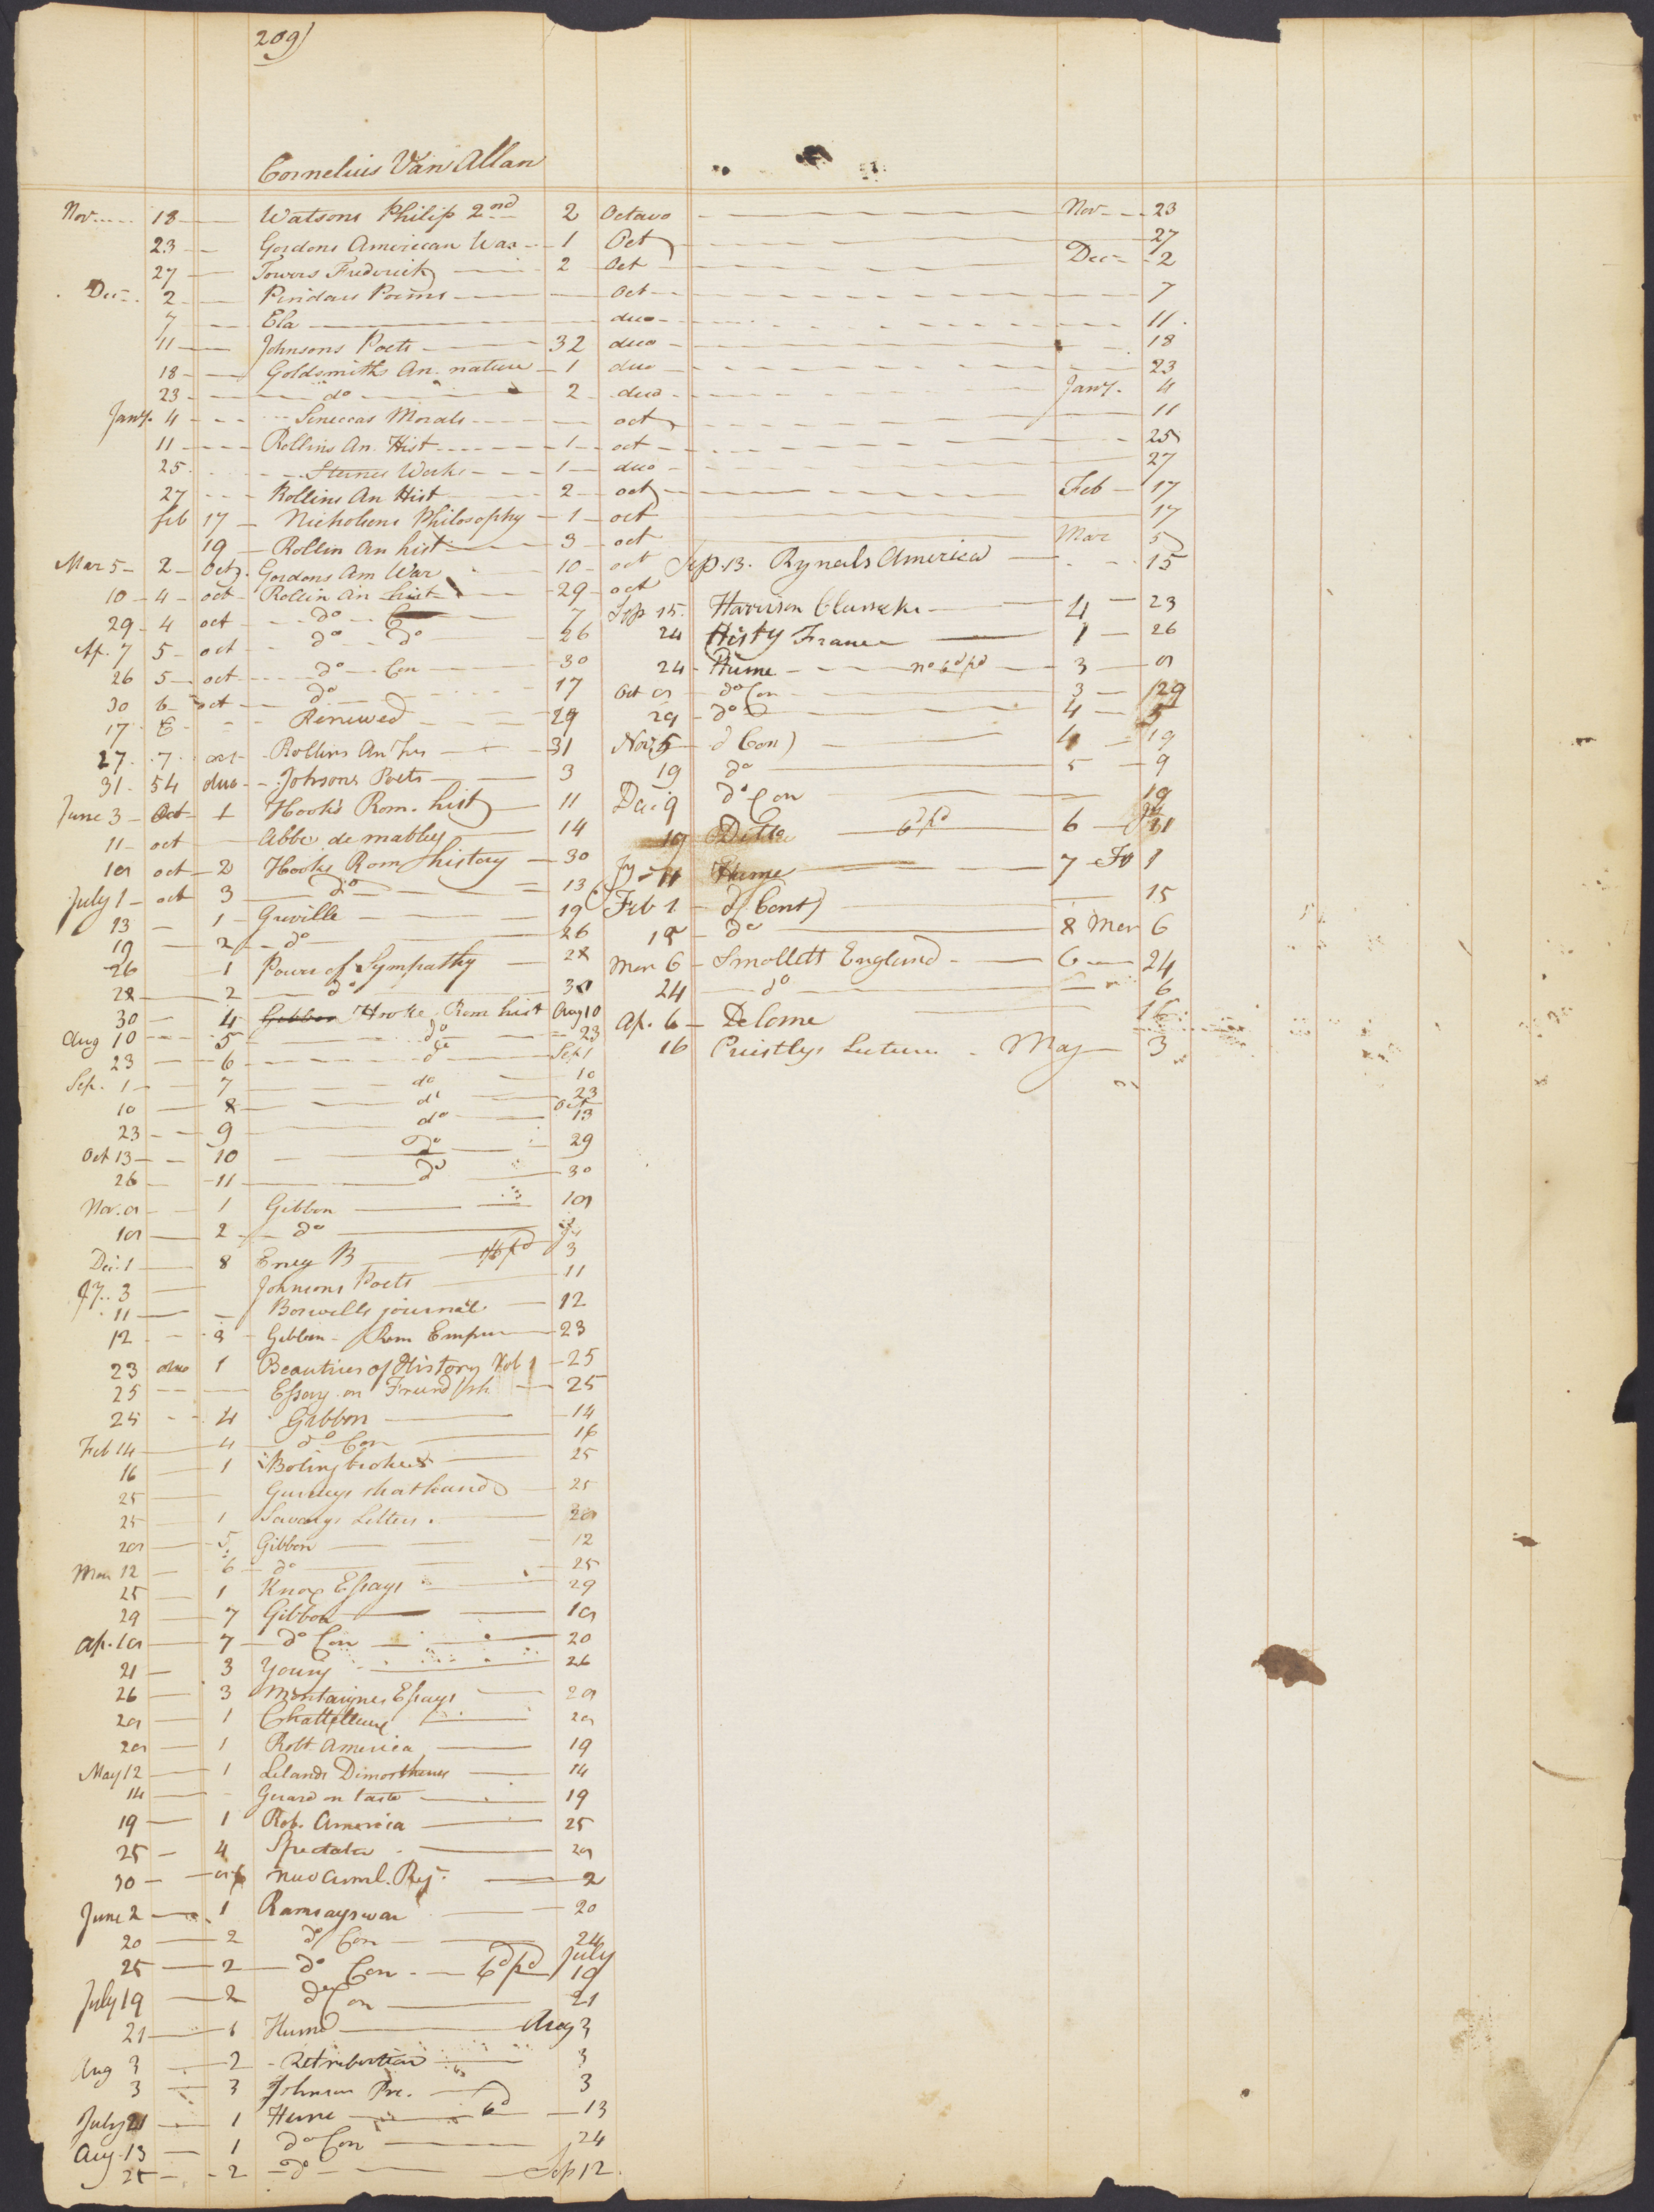 209)
Cornelius Van Allan
Nov 18 Watsons Philip 2nd 2 Octavo Nov 23
23 Gordons American War 1 Oct 27
27 Towers Frederick 2 Oct Dec 2
Dec 2 Pindars Poems Oct 7
7 Ela duo 11
11 Johnsons Poets 32 duo 18
18 Goldsmiths An. nature 1 duo 23
23 do 2 duo Jany. 4
Jany. 4 Seneccas Morals oct 11
11 Rollins An. Hist 1 oct 25
25 Sternes Works 1 duo 27
27 Rollins An Hist 2 oct Feb 17
feb 17 Nicholsons Philosophy 1 oct 17
19 Rollin An hist 3 oct Mar 5
Mar 5 2 Oct. Gordons Am War 10 oct
10 4 oct Rollin An hist 29 oct
29 4 oct do 7
Ap. 7 5 oct do do 26
26 5 oct do Con 30
30 6 oct do 17
17 6 Renewed 29
27 7 oct Rollins An his 31
31 54 duo Johsons Poets 3
June 3 Oct 1 Hooks Rom. hist 11
11 oct Abbe de mabley 14
19 oct 2 Hooks Rom history 30
July 1 oct 3 do 13
13 1 Greville 19
19 2 do 26
26 1 Power of Sympathy 28
28 2 do 30
30 4 Gibbon Hooke Rom hist Aug 10
Aug 10 5 do 23
23 6 do Sep 1
Sep. 1 7 do 10
10 8 do 23
23 9 do Oct 13
Oct 13 10 do 29
26 11 do 30
Nov. 9 1 Gibbon 19
19 2 do
Dec. 1 8 Ency B 3
Jy. 3 Johnsons Poets 11
11 Boswells journal 12
12 3 Gibbon Rom Empire 23
23 duo 1 Beauties of History Vol 1 25
25 Essay on Friendship 25
25 4 Gibbon 14
Feb 14 4 do Con 16
16 1 Bolingbrokes 25
25 Gurneys shorthand 25
25 1 Savarys Letters 29
29 5 Gibbon 12
Mar 12 6 do 25
25 1 Knox Essays 29
29 7 Gibbon 19
Ap. 19 7 do Con 20
21 3 Young 26
26 3 Montaignes Essays 29
29 1 29
29 1 Robt America 19
May 12 1 Lelands Dimosthenes 14
14 Gerard on taste 19
19 1 Rob. America 25
25 4 Spectator 29
30 New Annl. Reg. 2
June 2 1 Ramsays war 20
20 2 do Con 24
25 2 do Con 6d pd July 19
July 19 2 do Con 21
21 1 Hume Aug 3
Aug 3 2 Retribution 3
3 3 Johnson Pre. 3
July 21 1 Hume 6d 13
Aug 13 1 do Con 24
25 2 do Sep 12
Sep. 13. Rynals America 15
Sep 15. Harrison Classicks 4 23
24 Histy France 1 26
24 Hume no 6d pd 3 9
Oct 9 do Con 3 29
29 do 4 5
Nov 5 d Con) 4 19
19 do 5 9
Dec 9 do Con 19
19 Ditto 6d pd 6 11
Jy 11 Hume 7 Fb 1
Feb 1 do Cont) 15
15 do 8 Mar 6
Mar 6 Smollett England 6 24
24 do 6
Ap. 6 De Lome 16
16 Priestlys Lectures May 3